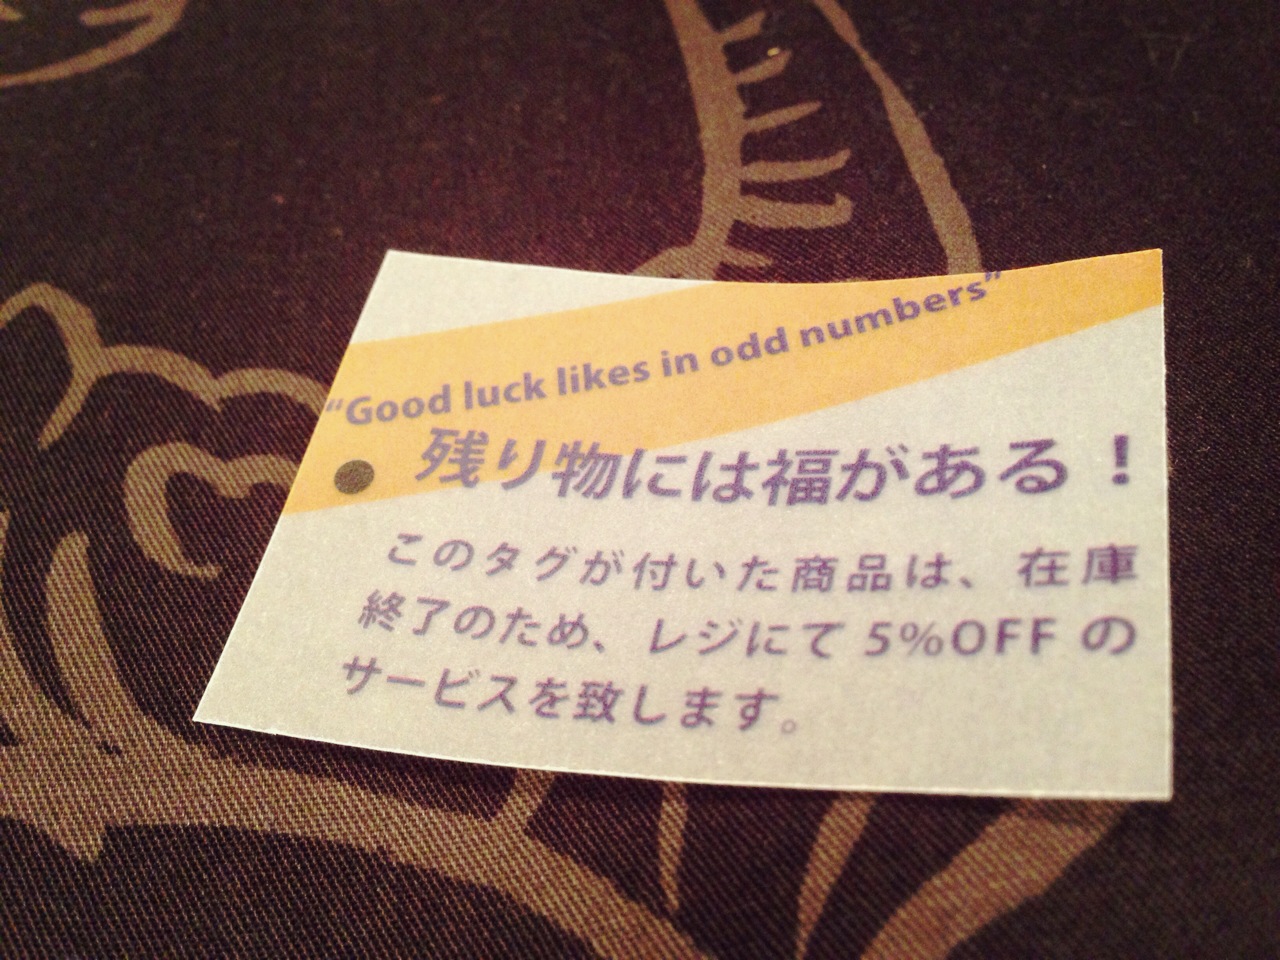 “Good luck likes in odd numbers”
残り物には福がある！
このタグが付いた商品は、在庫
終了のため、レジにて 5%OFF の
サービスを致します。